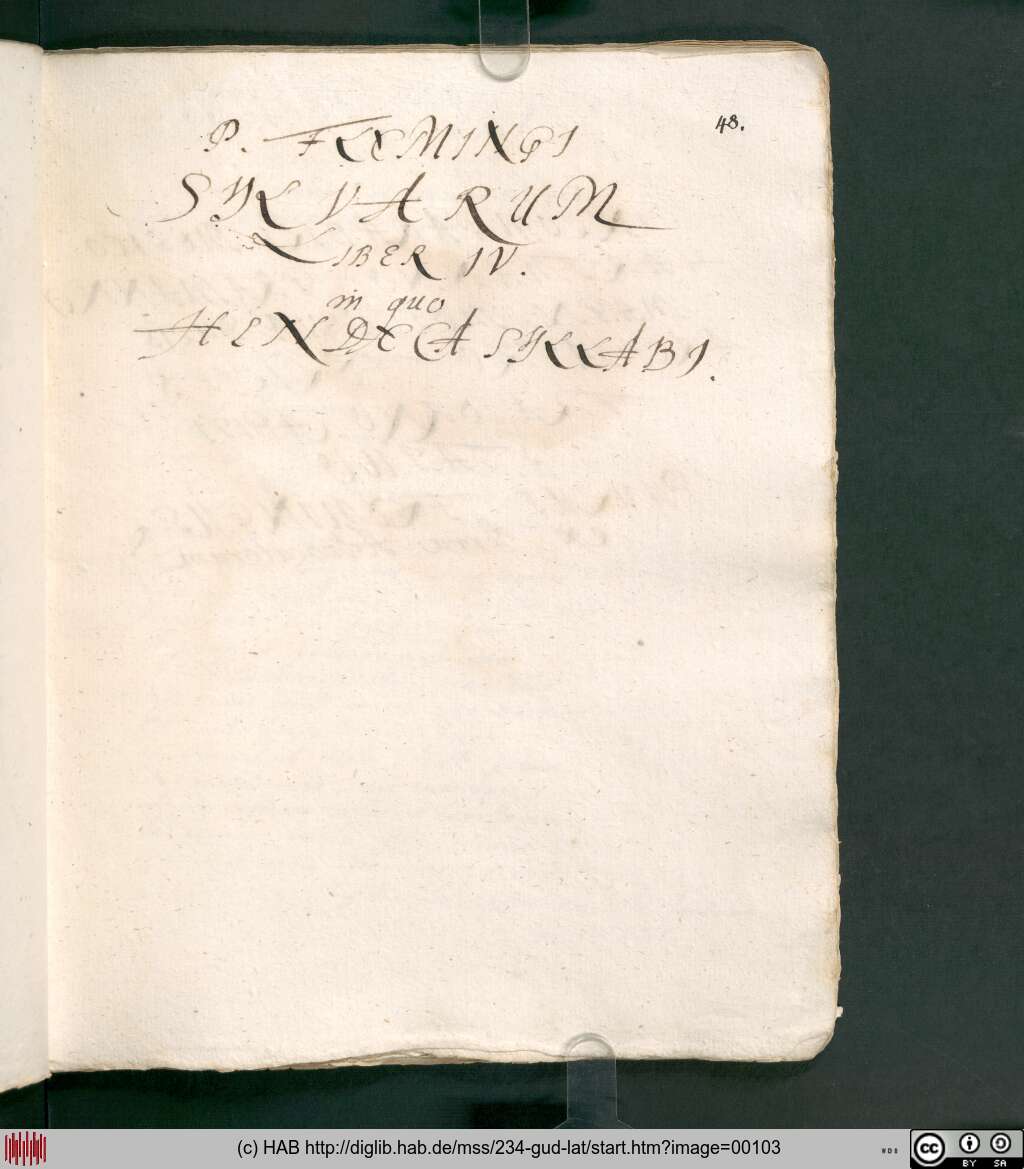 48.
P. FLEMINGI
SYLVARUM
LIBER IV.
in quo
HENDECASYLLABI.
(c) HAB http://diglib.hab.de/mss/234-gud-lat/start.htm?image=00103
cc BY SA